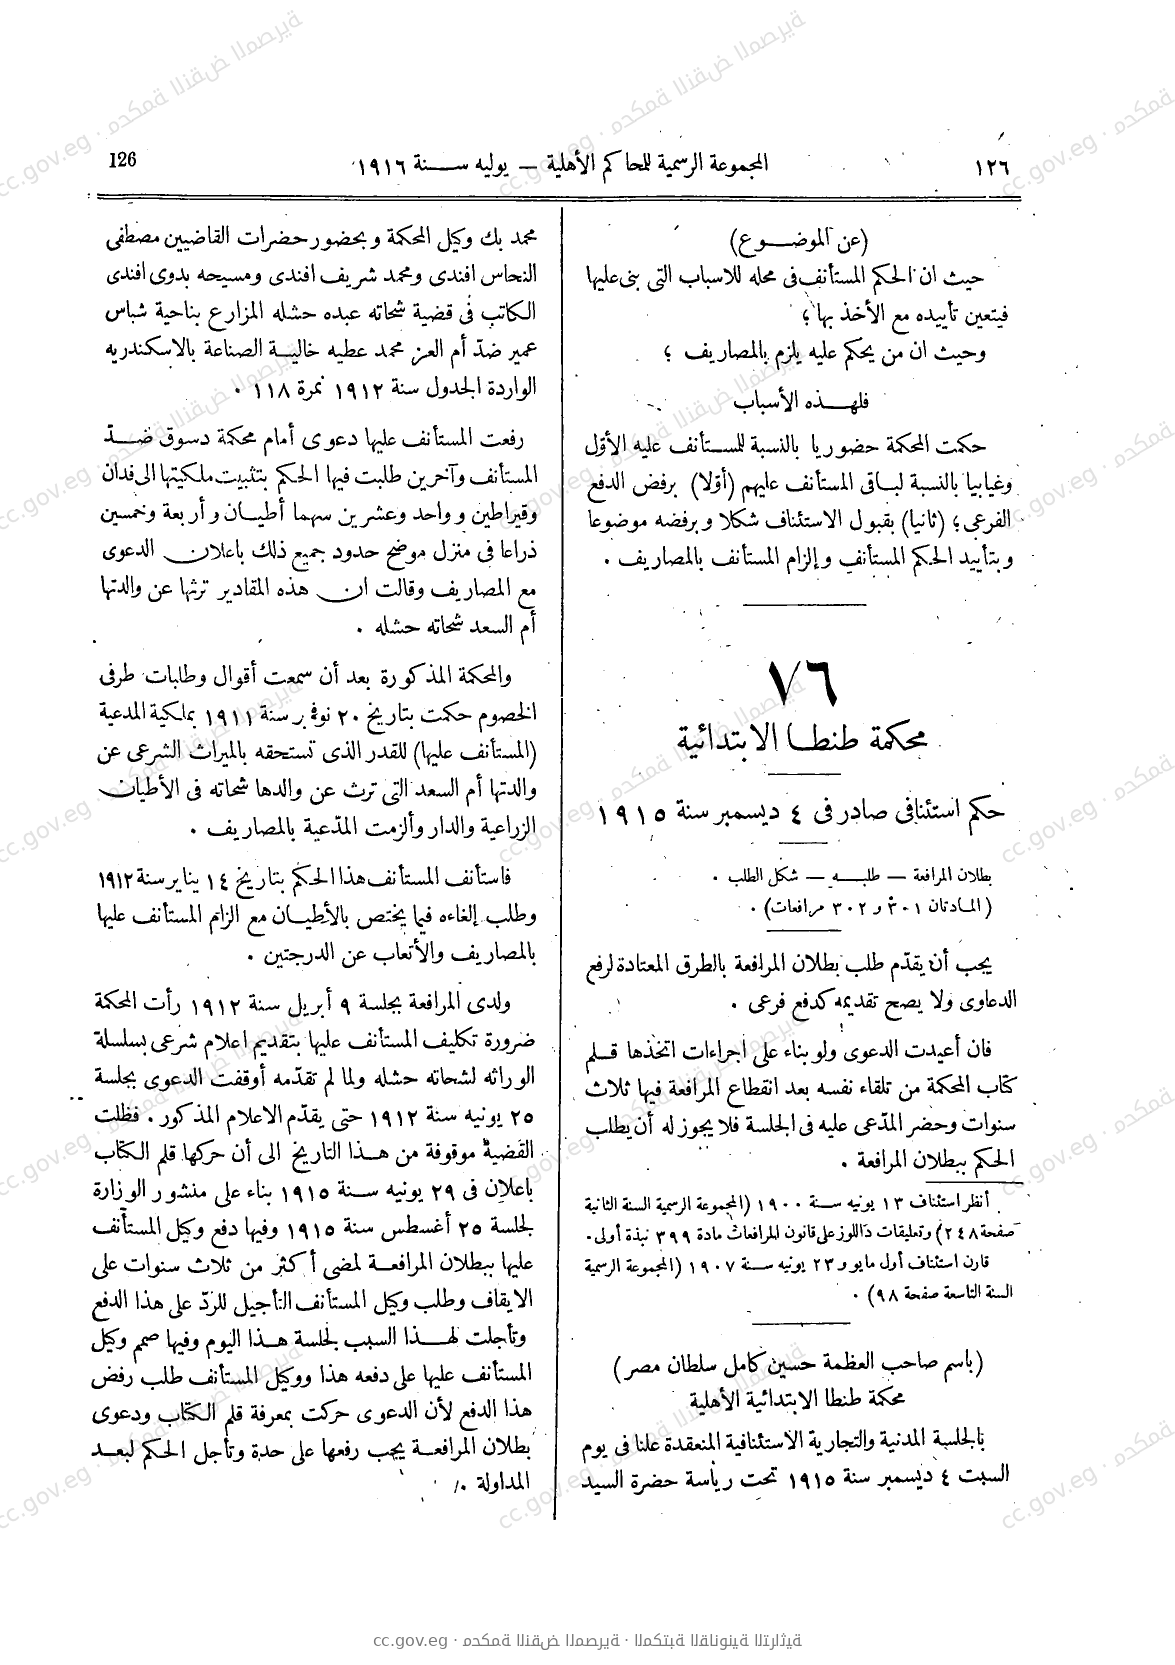 ١٢٦
المجموعة الرسمية للمحاكم الأهلية — يوليه سنة ١٩١٦
126
(عن الموضوع)
حيث ان الحكم المستأنف فى محله للاسباب التى بنى عليها
فيتعين تأييده مع الأخذ بها ؛
وحيث ان من يحكم عليه يلزم بالمصاريف ؛
فلهذه الأسباب
حكمت المحكمة حضوريا بالنسبة للمستأنف عليه الأوّل
وغيابيا بالنسبة لباقى المستأنف عليهم (أوّلا) برفض الدفع
الفرعى ؛ (ثانيا) بقبول الاستئناف شكلا وبرفضه موضوعا
وبتأييد الحكم المستأنف وإلزام المستأنف بالمصاريف .
٧٦
محكمة طنطا الابتدائية
حكم استئنافى صادر فى ٤ ديسمبر سنة ١٩١٥
بطلان المرافعة — طلبه — شكل الطلب .
(المادتان ٣٠١ و ٣٠٢ مرافعات) .
يجب أن يقدّم طلب بطلان المرافعة بالطرق المعتادة لرفع
الدعاوى ولا يصح تقديمه كدفع فرعى .
فان أعيدت الدعوى ولو بناء على اجراءات اتخذها قلم
كتاب المحكمة من تلقاء نفسه بعد انقطاع المرافعة فيها ثلاث
سنوات وحضر المدّعى عليه فى الجلسة فلا يجوز له أن يطلب
الحكم ببطلان المرافعة .
أنظر استئناف ١٣ يونيه سنة ١٩٠٠ (المجموعة الرسمية السنة الثانية
صفحة ٢٤٨) وتعليقات داللوز على قانون المرافعات مادة ٣٩٩ نبذة أولى .
قارن استئناف أول مايو و ٢٣ يونيه سنة ١٩٠٧ (المجموعة الرسمية
السنة التاسعة صفحة ٩٨) .
(باسم صاحب العظمة حسين كامل سلطان مصر)
محكمة طنطا الابتدائية الأهلية
بالجلسة المدنية والتجارية الاستئنافية المنعقدة علنا فى يوم
السبت ٤ ديسمبر سنة ١٩١٥ تحت رياسة حضرة السيد
محمد بك وكيل المحكمة وبحضور حضرات القاضيين مصطفى
النحاس افندى ومحمد شريف افندى ومسيحه بدوى افندى
الكاتب فى قضية شحاته عبده حشله المزارع بناحية شباس
عمير ضدّ أم العز محمد عطيه خالية الصناعة بالاسكندريه
الواردة الجدول سنة ١٩١٢ نمرة ١١٨ .
رفعت المستأنف عليها دعوى أمام محكمة دسوق ضدّ
المستأنف وآخرين طلبت فيها الحكم بتثبيت ملكيتها الى فدان
وقيراطين وواحد وعشرين سهما أطيان وأربعة وخمسين
ذراعا فى منزل موضح حدود جميع ذلك باعلان الدعوى
مع المصاريف وقالت ان هذه المقادير ترثها عن والدتها
أم السعد شحاته حشله .
والمحكمة المذكورة بعد أن سمعت أقوال وطلبات طرفى
الخصوم حكمت بتاريخ ٢٠ نوفمبر سنة ١٩١١ بملكية المدعية
(المستأنف عليها) للقدر الذى تستحقه بالميراث الشرعى عن
والدتها أم السعد التى ترث عن والدها شحاته فى الأطيان
الزراعية والدار وألزمت المدّعية بالمصاريف .
فاستأنف المستأنف هذا الحكم بتاريخ ١٤ يناير سنة ١٩١٢
وطلب إلغاءه فيما يختص بالأطيان مع الزام المستأنف عليها
بالمصاريف والأتعاب عن الدرجتين .
ولدى المرافعة بجلسة ٩ أبريل سنة ١٩١٢ رأت المحكمة
ضرورة تكليف المستأنف عليها بتقديم اعلام شرعى بسلسلة
الوراثه لشحاته حشله ولما لم تقدّمه أوقفت الدعوى بجلسة
٢٥ يونيه سنة ١٩١٢ حتى يقدّم الاعلام المذكور . فظلت
القضية موقوفة من هذا التاريخ الى أن حركها قلم الكتاب
باعلان فى ٢٩ يونيه سنة ١٩١٥ بناء على منشور الوزارة
لجلسة ٢٥ أغسطس سنة ١٩١٥ وفيها دفع وكيل المستأنف
عليها ببطلان المرافعة لمضى أكثر من ثلاث سنوات على
الايقاف وطلب وكيل المستأنف التأجيل للردّ على هذا الدفع
وتأجلت لهذا السبب لجلسة هذا اليوم وفيها صمم وكيل
المستأنف عليها على دفعه هذا ووكيل المستأنف طلب رفض
هذا الدفع لأن الدعوى حركت بمعرفة قلم الكتاب ودعوى
بطلان المرافعة يجب رفعها على حدة وتأجل الحكم لبعد
المداولة .
cc.gov.eg · محكمة النقض المصرية · المكتبة القانونية التراثية